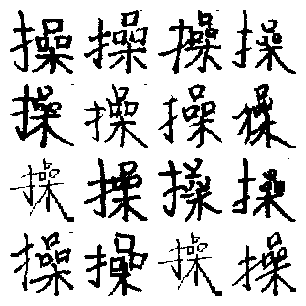 操操操操
操操操操
操操操操
操操操操